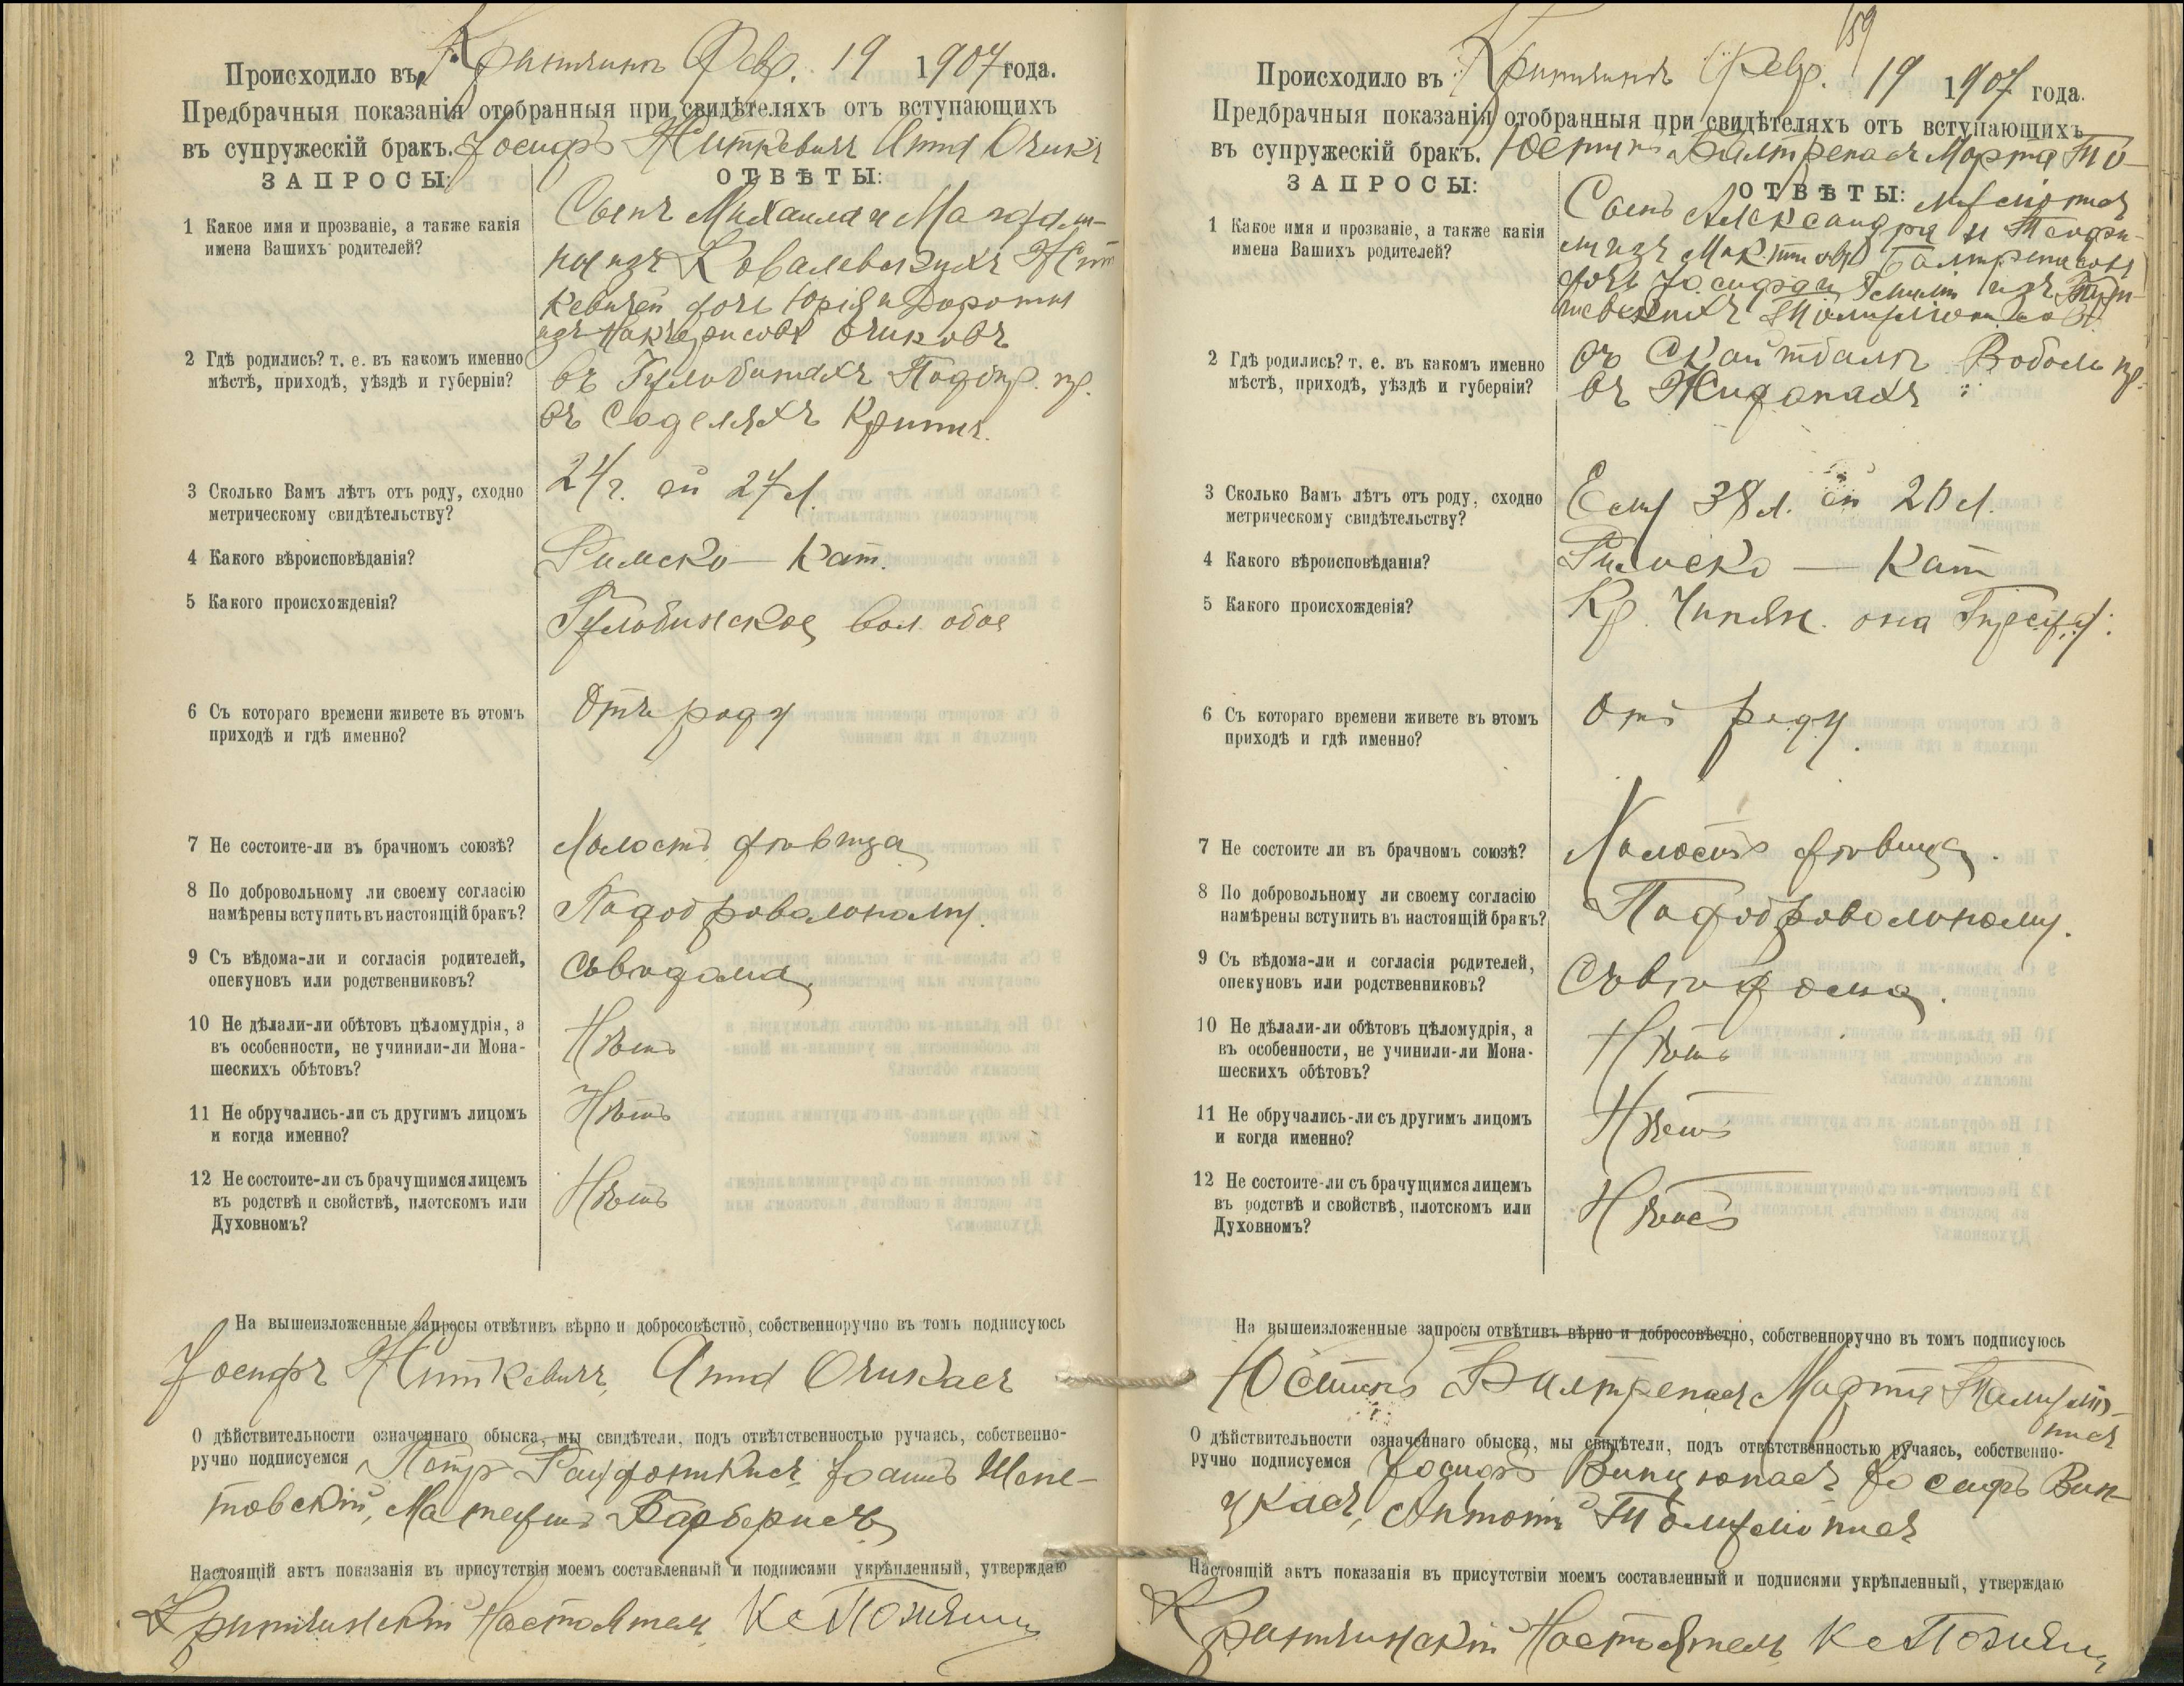 Происходило въ Кринчинѣ Февр. 19 1907 года.
Предбрачныя показанія отобранныя при свидѣтеляхъ отъ вступающихъ
въ супружескій бракъ. Іосифъ Житкевичъ Анна Очикъ
ЗАПРОСЫ: ОТВѢТЫ:
1 Какое имя и прозваніе, а также какія
имена Вашихъ родителей?
Сынъ Михаила и Магдали-
ны изъ Ковалевскихъ Жит
кевичей дочь Юрія и Дороты
изъ Очиковъ
2 Гдѣ родились? т. е. въ какомъ именно
мѣстѣ, приходѣ, уѣздѣ и губерніи?
въ Подбир. пр.
въ Саделяхъ Кринч.
3 Сколько Вамъ лѣтъ отъ роду, сходно
метрическому свидѣтельству?
24 г. ей 27 л.
4 Какого вѣроисповѣданія?
Римско — Кат.
5 Какого происхожденія?
Гулобинской вол. обое
6 Съ котораго времени живете въ этомъ
приходѣ и гдѣ именно?
Отъ роду
7 Не состоите-ли въ брачномъ союзѣ?
Холостъ дѣвица
8 По добровольному ли своему согласію
намѣрены вступить въ настоящій бракъ?
Подобровольному.
9 Съ вѣдома-ли и согласія родителей,
опекуновъ или родственниковъ?
Съвѣдома
10 Не дѣлали-ли обѣтовъ цѣломудрія, а
въ особенности, не учинили-ли Мона-
шескихъ обѣтовъ?
Нѣтъ
11 Не обручались-ли съ другимъ лицомъ
и когда именно?
Нѣтъ
12 Не состоите-ли съ брачущимся лицемъ
въ родствѣ и свойствѣ, плотскомъ или
Духовномъ?
Нѣтъ
На вышеизложенные запросы отвѣтивъ вѣрно и добросовѣстно, собственноручно въ томъ подписуюсь
Іосифъ Житкевичъ, Анна Очикасъ
О дѣйствительности означеннаго обыска, мы свидѣтели, подъ отвѣтственностью ручаясь, собственно-
ручно подписуемся Петръ Іоаннъ Шепе-
товскій, Матеушъ Барберисъ
Настоящій актъ показанія въ присутствіи моемъ составленный и подписями укрѣпленный, утверждаю
Кринчинскій Настоятель Кс
159
Происходило въ Кринчинѣ Февр. 19 1907 года.
Предбрачныя показанія отобранныя при свидѣтеляхъ отъ вступающихъ
въ супружескій бракъ. Юстинъ Балтренасъ Марта То-
ЗАПРОСЫ: ОТВѢТЫ:
1 Какое имя и прозваніе, а также какія
имена Вашихъ родителей?
Сынъ Александра и Теофи-
ли изъ
дочь Іосифа и изъ
2 Гдѣ родились? т. е. въ какомъ именно
мѣстѣ, приходѣ, уѣздѣ и губерніи?
въ Скайтбалѣ Вобол. пр.
въ Жидонахъ "
3 Сколько Вамъ лѣтъ отъ роду, сходно
метрическому свидѣтельству?
Ему 38 л. ей 20 л.
4 Какого вѣроисповѣданія?
Римско — Кат
5 Какого происхожденія?
Кр. Чипян. она
6 Съ котораго времени живете въ этомъ
приходѣ и гдѣ именно?
Отъ роду.
7 Не состоите ли въ брачномъ союзѣ?
Холостъ дѣвица.
8 По добровольному ли своему согласію
намѣрены вступить въ настоящій бракъ?
Подобровольному.
9 Съ вѣдома-ли и согласія родителей,
опекуновъ или родственниковъ?
Съвѣдома.
10 Не дѣлали-ли обѣтовъ цѣломудрія, а
въ особенности, не учинили-ли Мона-
шескихъ обѣтовъ?
Нѣтъ
11 Не обручались-ли съ другимъ лицомъ
и когда именно?
Нѣтъ
12 Не состоите-ли съ брачущимся лицемъ
въ родствѣ и свойствѣ, плотскомъ или
Духовномъ?
Нѣтъ
На вышеизложенные запросы отвѣтивъ вѣрно и добросовѣстно, собственноручно въ томъ подписуюсь
Юстинъ Балтренасъ Марта
О дѣйствительности означеннаго обыска, мы свидѣтели, подъ отвѣтственностью ручаясь, собственно-
ручно подписуемся Іосифъ Винцюнасъ Іосифъ Вин-
цкасъ, Антонъ
Настоящій актъ показанія въ присутствіи моемъ составленный и подписями укрѣпленный, утверждаю
Кринчинскій Настоятель Кс